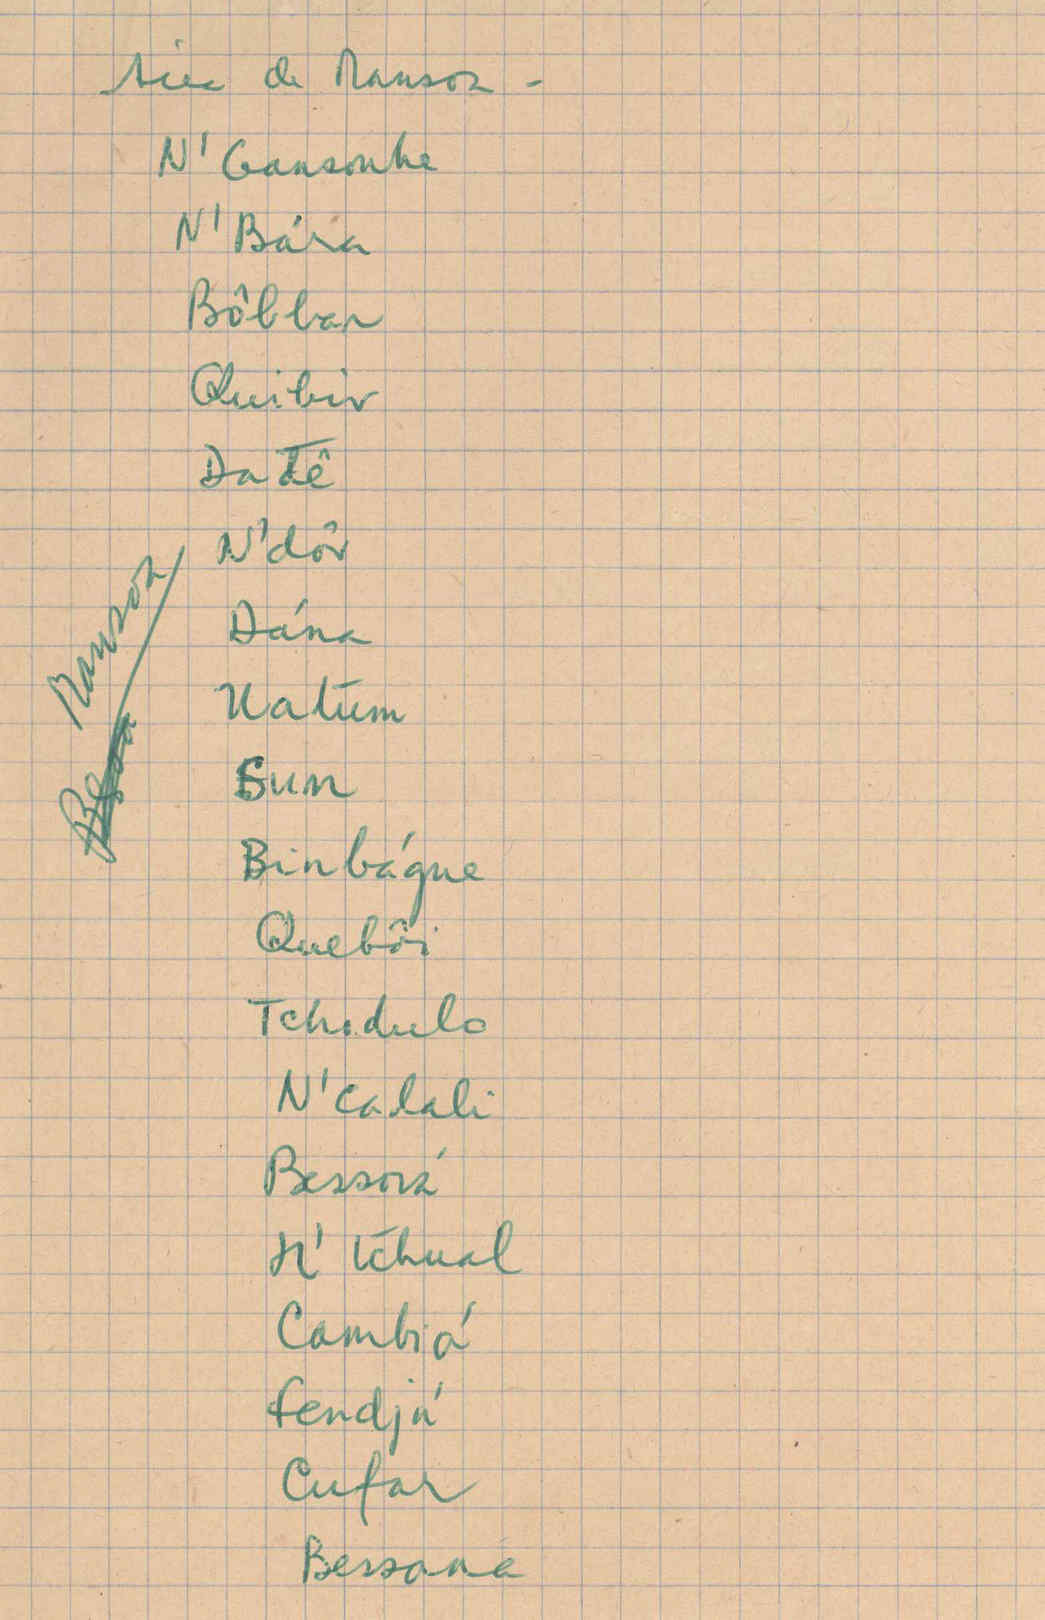 de Mansoa -
N'Gansonhe
N'Bára
Bôbbar
Quibir
Datê
N'dôr
Dána
Natum
Sun
Binbágue
Quebôi
Tchidulo
N'calali
Bessorá
N' tchual
Cambiá
Fendjá
Cufar
Bessana
Mansoa